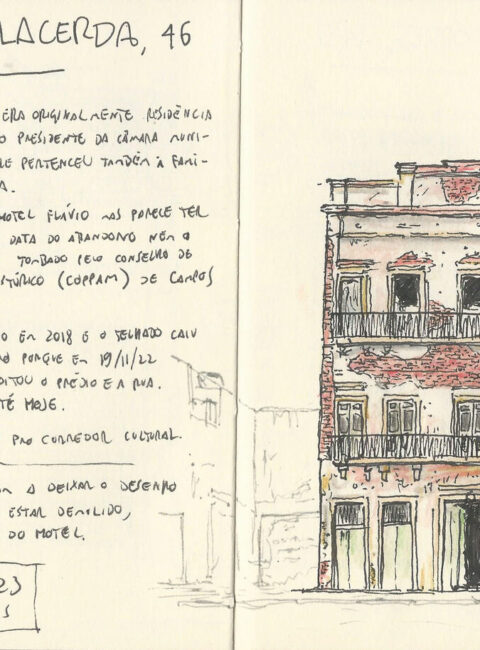 LACERDA, 46
ERA ORIGINALMENTE RESIDÊNCIA
O PRESIDENTE DA CÂMARA MUNI-
LE PERTENCEU TAMBÉM À FAMÍ-
A.
MOTEL FLÁVIO MAS PARECE TER
DATA DO ABANDONO NEM O
TOMBADO PELO CONSELHO DE
STÓRICO (COPPAM) DE CAMPOS
O EM 2018 E O TELHADO CAIU
ÃO PORQUE EM 19/11/22
DITOU O PRÉDIO E A RUA.
TÉ HOJE.
PRO CORREDOR CULTURAL.
M A DEIXAR O DESENHO
ESTAR DEMOLIDO,
DO MOTEL.
23
S